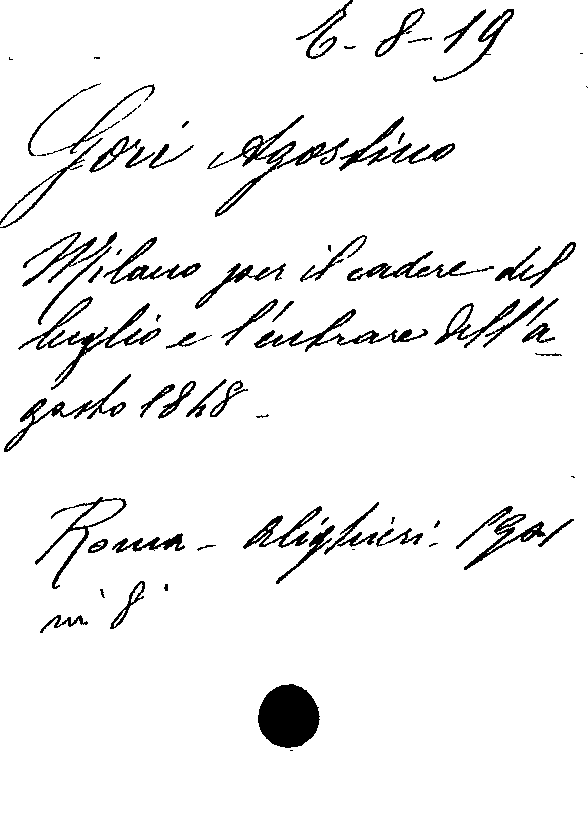 E-8-19
Gori Agostino
Milano per il cadere del
luglio e l'entrare dell'a
gosto 1848 -
Roma - Alighieri. 1901
in 8°